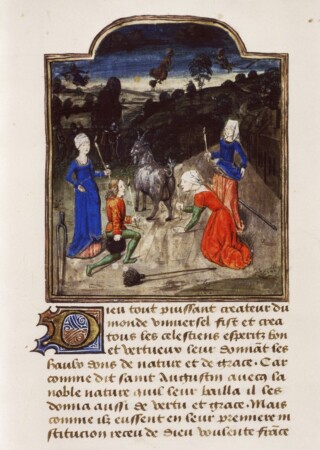 Dieu tout puissant createur du
monde universel fist et crea
tous les celestiens esperitz bon
et vertueux leur donnant les
haulx dons de nature et de grace. Car
comme dit saint Augustin avecq la
noble nature quil leur bailla il les
donna aussi de vertu et grace. Mais
comme ilz eussent en leur premiere in
stitucion receu de dieu voulente france